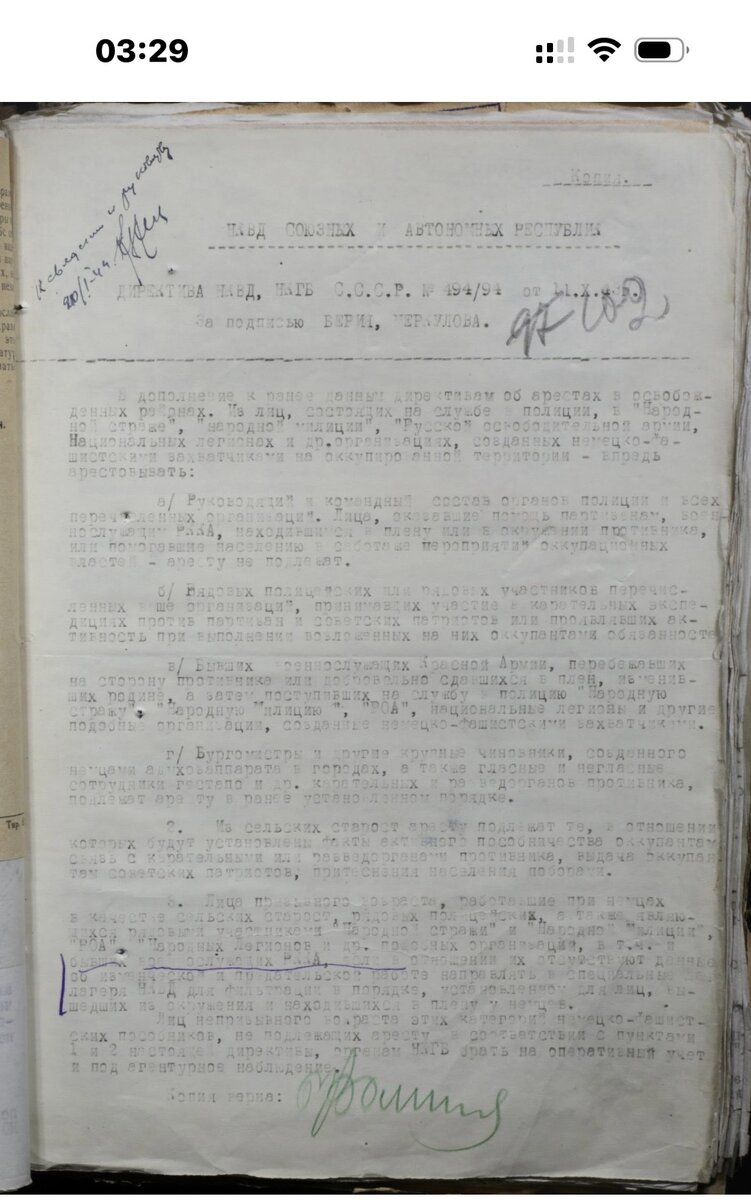 03:29
К сведению и руководству
20/I-44
Копия.
НКВД СОЮЗНЫХ И АВТОНОМНЫХ РЕСПУБЛИК
ДИРЕКТИВА НКВД, НКГБ С.С.С.Р. № 494/94 от 11.X.43г.
За подписью БЕРИЯ, МЕРКУЛОВА.
В дополнение к ранее данным директивам об арестах в освобож-
денных районах. Из лиц, состоящих на службе в полиции, в "Народ-
ной страже", "народной милиции", "Русской освободительной армии,
Национальных легионах и др.организациях, созданных немецко-фа-
шистскими захватчиками на оккупированной территории - впредь
арестовывать:
а/ Руководящий и командный состав органов полиции и всех
перечисленных организаций. Лица, оказавшие помощь партизанам, воен-
нослужащим РККА, находившимся в плену или в окружении противника,
или помогавшие населению в саботаже мероприятий оккупационных
властей - аресту не подлежат.
б/ Рядовых полицейских или рядовых участников перечис-
ленных выше организаций, принимавших участие в карательных экспе-
дициях против партизан и советских патриотов или проявлявших ак-
тивность при выполнении возложенных на них оккупантами обязанносте
в/ Бывших военнослужащих Красной Армии, перебежавших
на сторону противника или добровольно сдавшихся в плен, изменив-
ших родине, а затем поступивших на службу в полицию "Народную
стражу", "Народную Милицию", "РОА", национальные легионы и другие
подобные организации, созданные немецко-фашистскими захватчиками.
г/ Бургомистры и другие крупные чиновники, созданного
немцами адмхозаппарата в городах, а также гласные и негласные
сотрудники гестапо и др. карательных и разведорганов противника,
подлежат аресту в ранее установленном порядке.
2. Из сельских старост аресту подлежат те, в отношении
которых будут установлены факты активного пособничества оккупантам
связь с карательными или разведорганами противника, выдача оккупан
там советских патриотов, притеснения населения поборами.
3. Лица призывного возраста, работавшие при немцах
в качестве сельских старост, рядовых полицейских, а также являю-
щихся рядовыми участниками "Народной стражи" и "Народной Милиции",
"РОА", "Народных Легионов и др. подобных организаций, в т.ч. и
бывших военнослужащих РККА, если в отношении их отсутствуют данные
об изменческой и предательской работе направлять в специальные
лагеря НКВД для фильтрации в порядке, установленном для лиц, вы-
шедших из окружения и находившихся в плену у немцев.
Лиц непризывного возраста этих категорий немецко-фашист-
ских пособников, не подлежащих аресту в соответствии с пунктами
1 и 2 настоящей директивы, органам НКГБ брать на оперативный учет
и под агентурное наблюдение.
Копия верна: